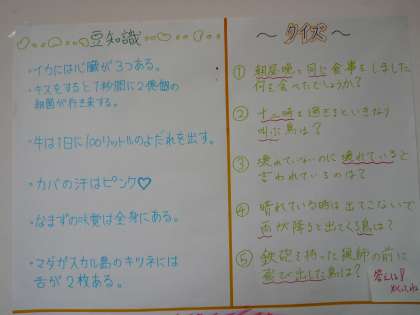 豆知識
・イカには心臓が3つある。
・キスをすると1秒間に2億個の
細菌が行き来する。
・牛は1日に100リットルのよだれを出す。
・カバの汗はピンク♡
・なまずの味覚は全身にある。
・マダガスカル島のキツネには
舌が2枚ある。
～クイズ～
① 朝昼晩と同じ食事をしました
何を食べたでしょうか?
② 十二時を過ぎるといきなり
叫ぶ鳥は?
③ 壊れていないのに壊れていると
言われているのは?
④ 晴れている時は出てこないで
雨が降ると出てくる鳥は?
⑤ 鉄砲を持った猟師の前に
飛び出した鳥は?
答えは!
めくってね